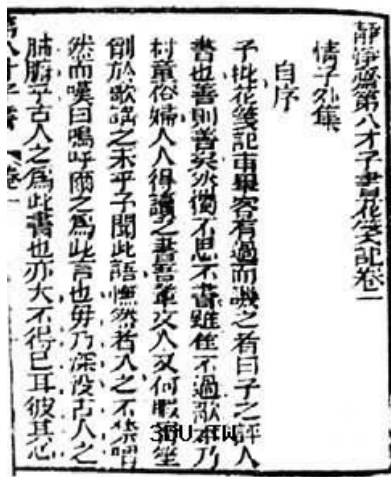 靜淨齋第八才子書花箋記卷一
情子外集
自序
予批花箋記甫畢客有過而譏之者曰子之評人
書也善則善矣然獨不思不書雖佳不過歌本乃
村童俗婦人人得讀之書吾輩文人又何暇
於歌謠之末乎予聞此語憮然若人之不禁喟
然而嘆曰嗚呼爾之為此言也毋乃深沒古人之
肺腑乎古人之為此書也亦大不得已耳彼其心
第八才子書 卷一
3BU.TW